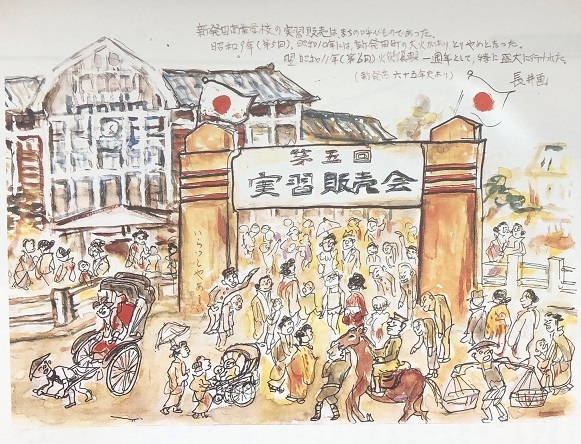 新発田商業学校の実習販売は、まちの呼びものであった。
昭和9年(第5回)、昭和10年には、新発田町の大火によりとりやめとなった。
翌昭和11年(第6回)火災復興一周年として、特に盛大に行われた。
(新発商六十五年史より)
長井画
第五回
実習販売会
いらっしゃあい